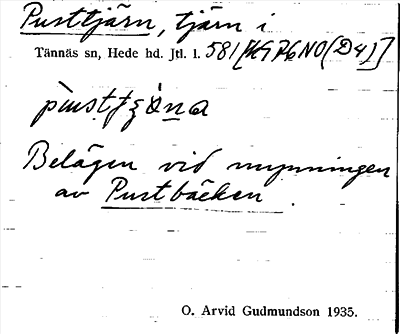 Pusttjärn, tjärn i
Tännäs sn, Hede hd. Jtl. l. 581
Belägen vid mynningen
av Pustbäcken
O. Arvid Gudmundson 1935.